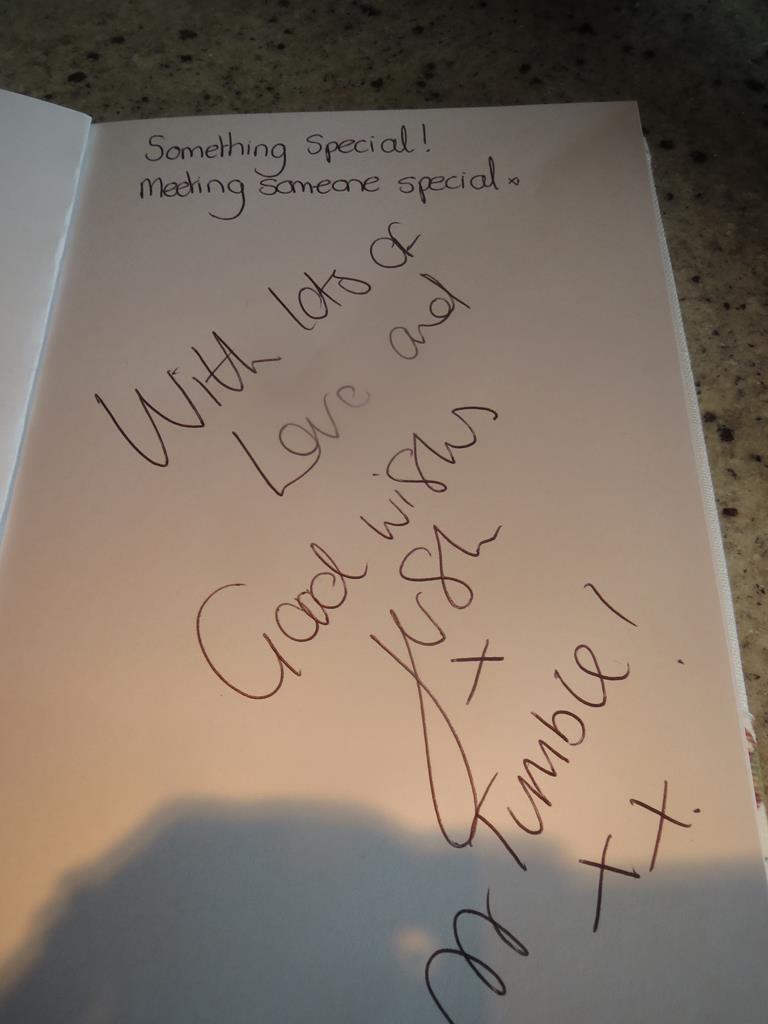 Something special!
Meeting someone special x
With lots of
Love and
Good wishes
x
Mr Tumble!
xx